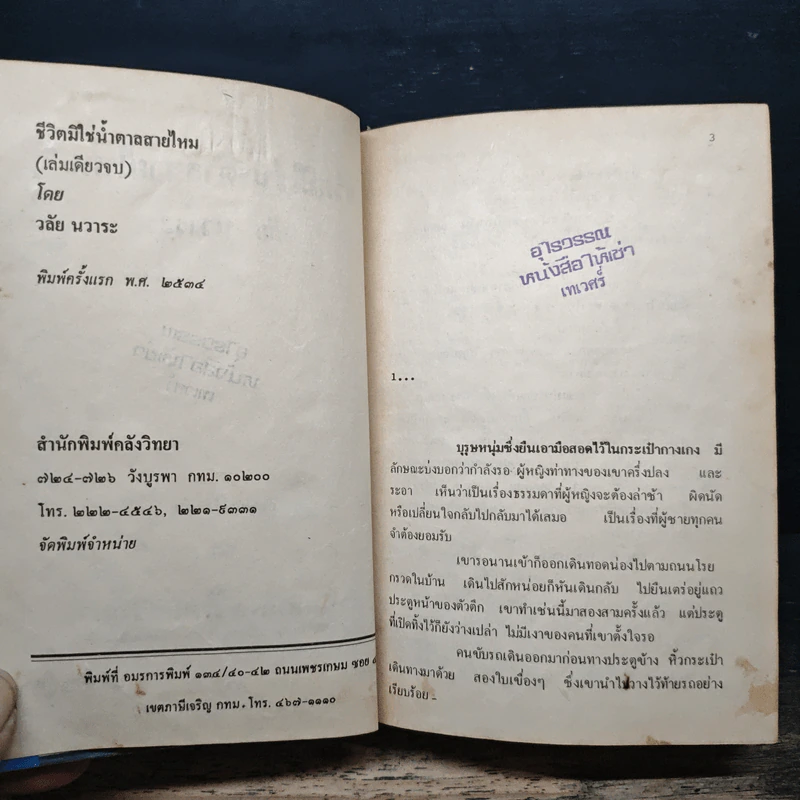 ชีวิตมิใช่น้ำตาลสายไหม
(เล่มเดียวจบ)
โดย
วลัย นวาระ
พิมพ์ครั้งแรก พ.ศ. ๒๕๓๔
สำนักพิมพ์คลังวิทยา
๗๒๔-๗๒๖ วังบูรพา กทม. ๑๐๒๐๐
โทร. ๒๒๒-๔๕๔๖, ๒๒๑-๙๓๓๑
จัดพิมพ์จำหน่าย
พิมพ์ที่ อมรการพิมพ์ ๑๓๔/๔๐-๔๒ ถนนเพชรเกษม ซอย
เขตภาษีเจริญ กทม. โทร. ๔๖๗-๑๑๑๐
3
อุไรวรรณ
หนังสือให้เช่า
เทเวศร์
1...
บุรุษหนุ่มซึ่งยืนเอามือสอดไว้ในกระเป๋ากางเกง มี
ลักษณะบ่งบอกว่ากำลังรอ ผู้หญิงท่าทางของเขาครึ่งปลง และ
ระอา เห็นว่าเป็นเรื่องธรรมดาที่ผู้หญิงจะต้องล่าช้า ผิดนัด
หรือเปลี่ยนใจกลับไปกลับมาได้เสมอ เป็นเรื่องที่ผู้ชายทุกคน
จำต้องยอมรับ
เขารอนานเข้าก็ออกเดินทอดน่องไปตามถนนโรย
กรวดในบ้าน เดินไปสักหน่อยก็หันเดินกลับ ไปยืนเตร่อยู่แถว
ประตูหน้าของตัวตึก เขาทำเช่นนี้มาสองสามครั้งแล้ว แต่ประตู
ที่เปิดทิ้งไว้ก็ยังว่างเปล่า ไม่มีเงาของคนที่เขาตั้งใจรอ
คนขับรถเดินออกมาก่อนทางประตูข้าง หิ้วกระเป๋า
เดินทางมาด้วย สองใบเขื่องๆ ซึ่งเขานำไปวางไว้ท้ายรถอย่าง
เรียบร้อย